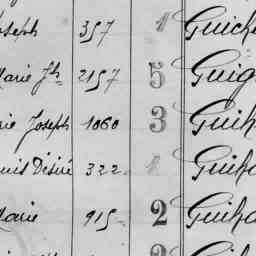 oseph 357 1 Guich
Marie Jh 2157 5 Guig
rie Joseph 1060 3 Guih
uis Désiré 322 1 Guiha
Marie 915 2 Guiha